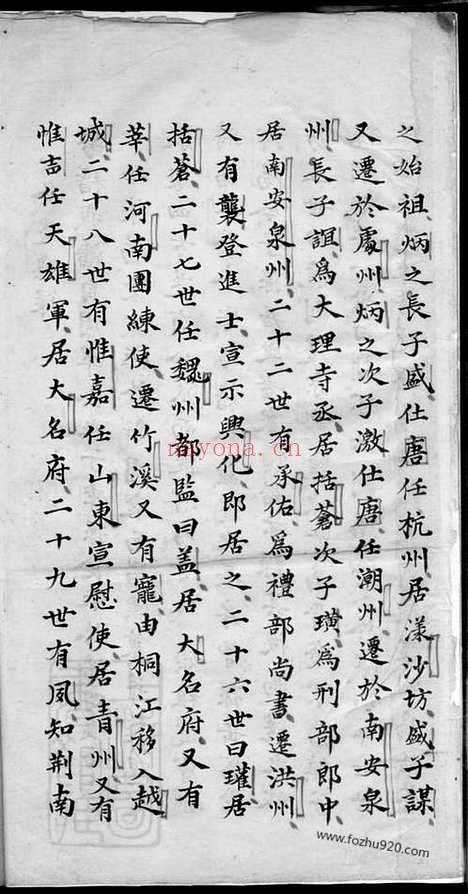 之始祖炳之長子盛仕唐任杭州居漾沙坊盛子謀
又遷於處州炳之次子激仕唐任潮州遷於南安泉
州長子誼為大理寺丞居括蒼次子璜為刑部郎中
居南安泉州二十二世有承佑為禮部尚書遷洪州
又有襲登進士宣示興化即居之二十六世曰瓘居
括蒼二十七世任魏州都監曰盖居大名府又有
莘任河南團練使遷竹溪又有寵由桐江移入越
城二十八世有惟嘉任山東宣慰使居青州又有
惟吉任天雄軍居大名府二十九世有夙知荆南
nayona.cn
www.fozhu920.com